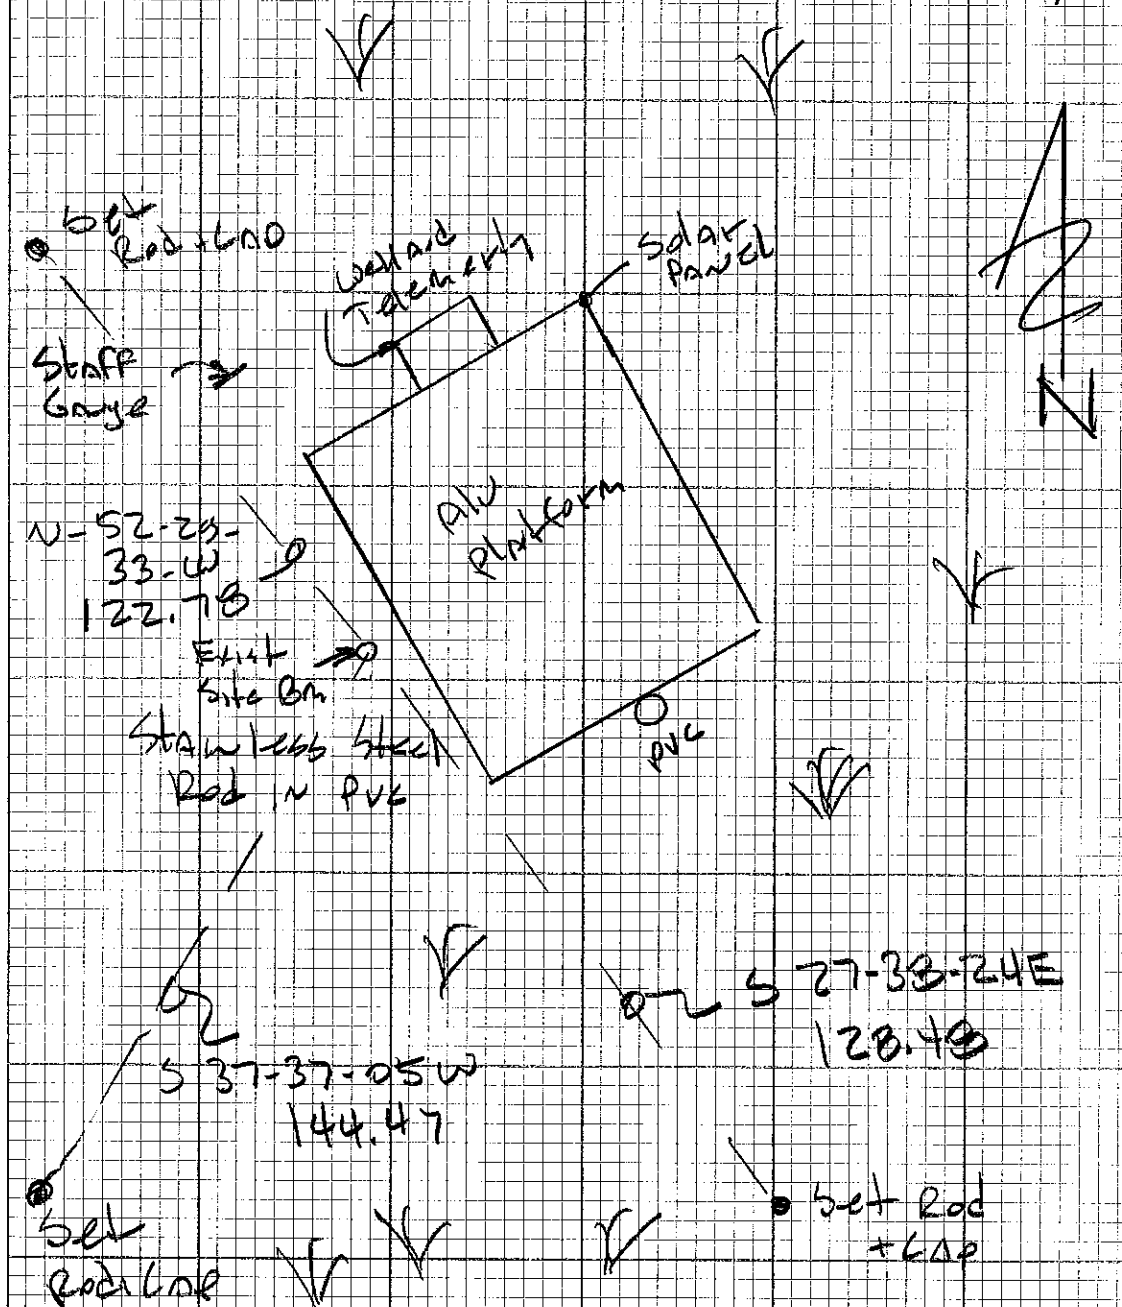 Set
Rod + CAP
Solar
PANEL
Telemerty
Staff
Gage
N
Alu
Platform
N-52-29-
33-W
122.78
Exist
Site Bm
Stainless Steel
Rod IN PVC
PVC
S 27-38-24E
128.48
S 37-37-05 W
144.47
Set Rod
+ CAP
Set
Rod + CAP